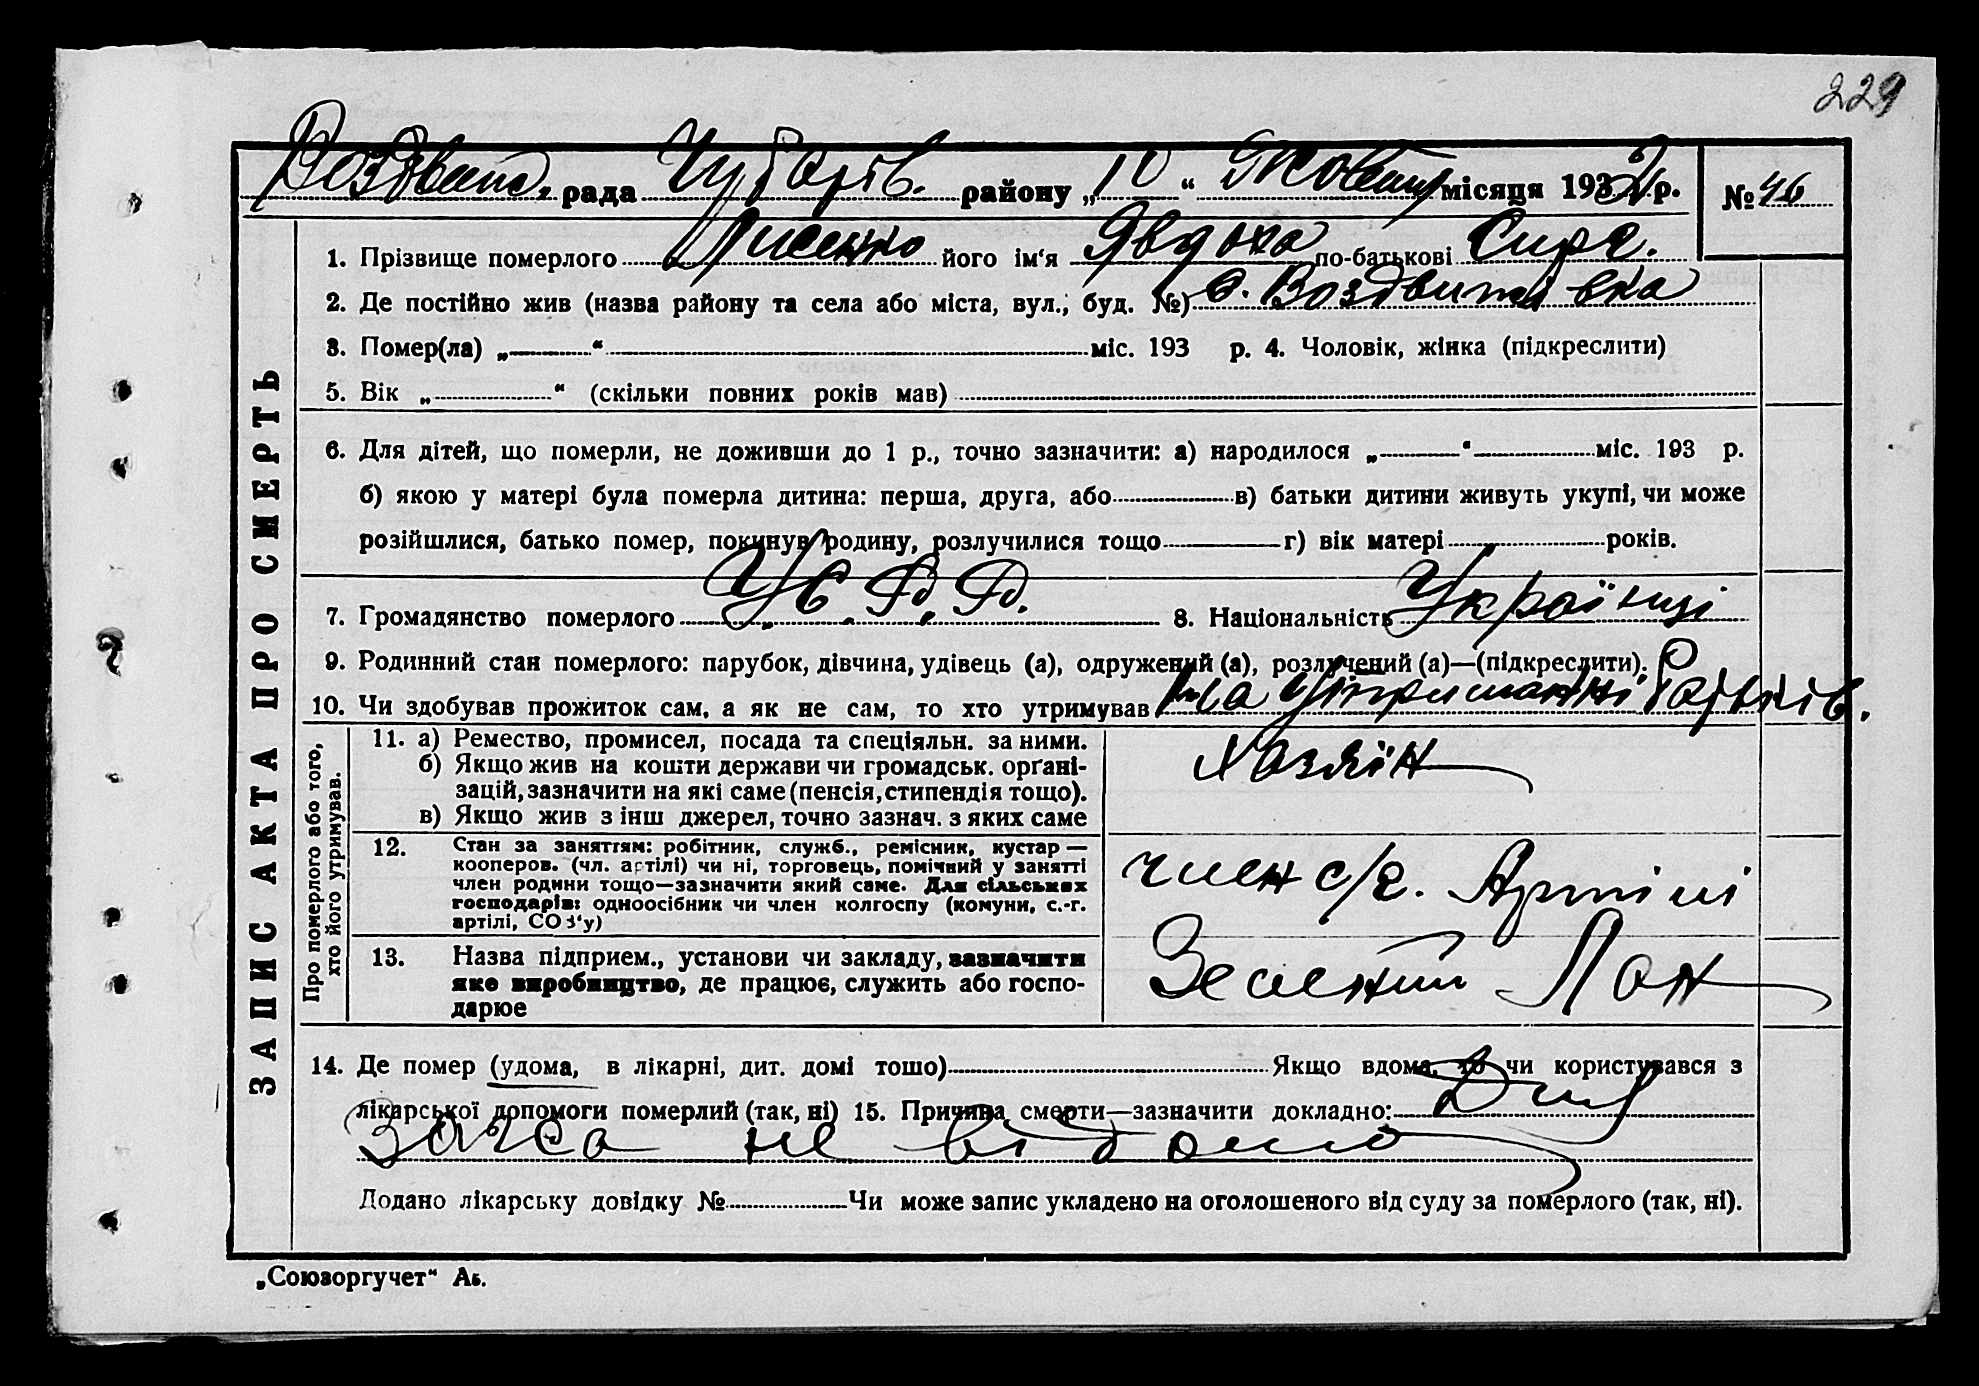 229
Воздвиж. рада Чубарів. району „10“ Жовтня місяця 1932 р. № 46
ЗАПИС АКТА ПРО СМЕРТЬ
1. Прізвище померлого Лисенко його ім‘я Явдоха по-батькові Сирг.
2. Де постійно жив (назва району та села або міста, вул., буд. №) с. Воздвижівка
3. Помер(ла) „ “ міс. 193 р. 4. Чоловік, жінка (підкреслити)
5. Вік „ “ (скільки повних років мав)
6. Для дітей, що померли, не доживши до 1 р., точно зазначити: а) народилося „ “ міс. 193 р.
б) якою у матері була померла дитина: перша, друга, або в) батьки дитини живуть укупі, чи може
розійшлися, батько помер, покинув родину, розлучилися тощо г) вік матері років.
7. Громадянство померлого У.С.Р.Р. 8. Національність Українці
9. Родинний стан померлого: парубок, дівчина, удівець (а), одружений (а), розлучений (а)—(підкреслити).
10. Чи здобував прожиток сам, а як не сам, то хто утримував На утриманні батьків.
Про померлого або того,
хто його утримував.
11. а) Ремество, промисел, посада та спеціяльн. за ними.
б) Якщо жив на кошти держави чи громадськ. орґані-
зацій, зазначити на які саме (пенсія, стипендія тощо).
в) Якщо жив з інш джерел, точно зазнач. з яких саме
Хазяїн
12. Стан за заняттям: робітник, служб., ремісник, кустар —
кооперов. (чл. артілі) чи ні, торговець, помічний у занятті
член родини тощо—зазначити який саме. Для сільських
господарів: одноосібник чи член колгоспу (комуни, с.-г.
артілі, СОЗ‘у)
член с/г. Артілі
13. Назва підприєм., установи чи закладу, зазначити
яке виробництво, де працює, служить або госпо-
дарює
Зелений Лан
14. Де помер (удома, в лікарні, дит. домі тошо) Якщо вдома, то чи користувався з
лікарської допомоги померлий (так, ні) 15. Причина смерти—зазначити докладно:
не відомо
Додано лікарську довідку № Чи може запис укладено на оголошеного від суду за померлого (так, ні).
„Союзоргучет“ Аь.